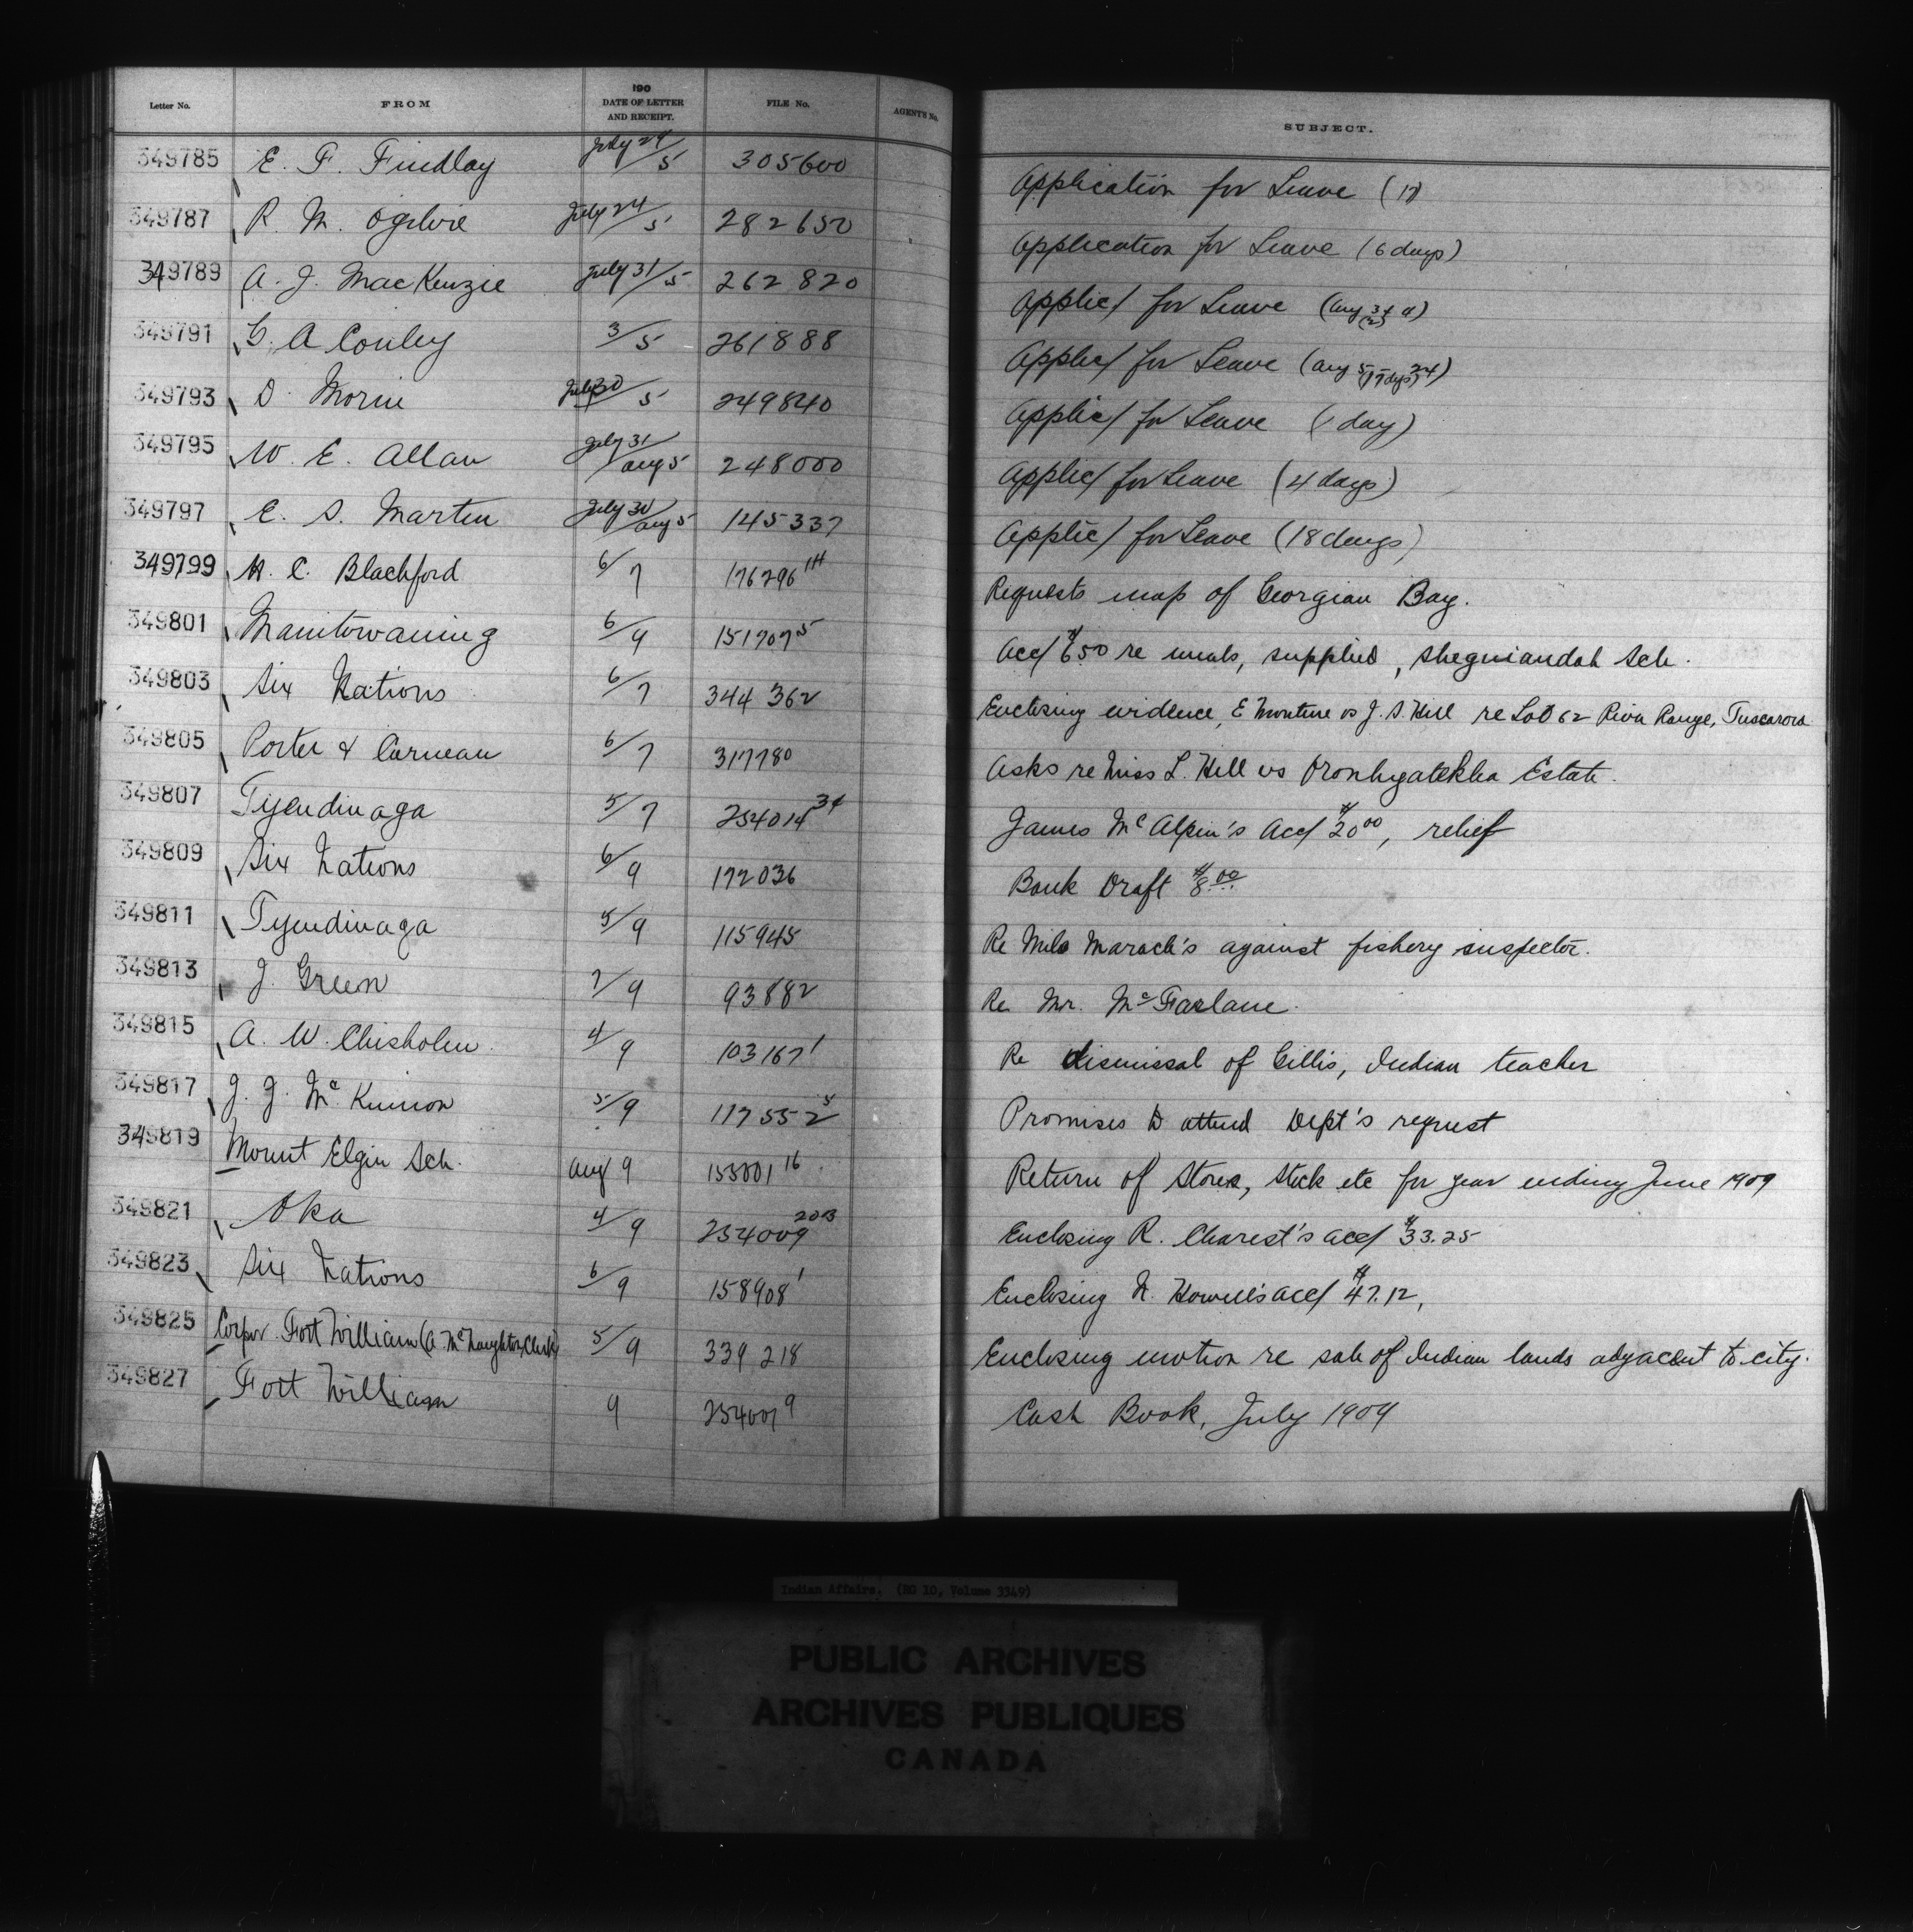 Letter No. FROM 190 DATE OF LETTER AND RECEIPT. FILE No. AGENT'S No. SUBJECT.
349785 E. F. Findlay July 29/5 305600 Application for Leave (17)
349787 R. M. Ogilvie July 24/5 282650 Application for Leave (6 days)
349789 A. J. MacKenzie July 31/5 262820 Applic/ for Leave (Aug 3 & 4) (2)
349791 G. A Conley 3/5 261888 Applic/ for Leave (Aug 5 - 24) (17 dys)
349793 D. Morin July 30/5 249840 Applic/ for Leave (1 day)
349795 W. E. Allan July 31/Aug 5 248000 Applic/ for Leave (4 days)
349797 E. S. Martin July 30/Aug 5 145337 Applic/ for Leave (18 days)
349799 H. C. Blachford 6/7 176296 1H Requests map of Georgian Bay.
349801 Manitowaning 6/9 151707 5 Acc/ $6.50 re meals, supplied, Sheguiandah Sch.
349803 Six Nations 6/7 344362 Enclosing evidence, E Monture vs J. S. Hill re Lot 62 River Range, Tuscarora
349805 Porter & Carneau 6/7 317780 Asks re Miss L. Hill vs Oronhyatekha Estate.
349807 Tyendinaga 5/7 254014 34 James McAlpin's Acc/ $20 00, relief
349809 Six Nations 6/9 172036 Bank Draft $8.00
349811 Tyendinaga 5/9 115945 Re Milo Maracle's against fishery inspector.
349813 J. Green 7/9 93882 Re Mr. McFarlane.
349815 A. W. Chisholm 4/9 103167 1 Re dismissal of Gillis, Indian teacher
349817 J. J. McKinnon 5/9 117552 5 Promises to attend Dept's request
349819 Mount Elgin Sch. Aug 9 155001 16 Return of Stores, Stock etc for year ending June 1909
349821 Oka 4/9 254009 20B Enclosing R. Charest's acc/ $33.25
349823 Six Nations 6/9 158908 1 Enclosing N. Howell's acc/ $47.12,
349825 Corpor. Fort William (A. McNaughton, Clerk) 5/9 339218 Enclosing motion re sale of Indian lands adjacent to city.
349827 Fort William 9 254007 9 Cash Book, July 1909
Indian Affairs. (RG 10, Volume 3349)
PUBLIC ARCHIVES
ARCHIVES PUBLIQUES
CANADA